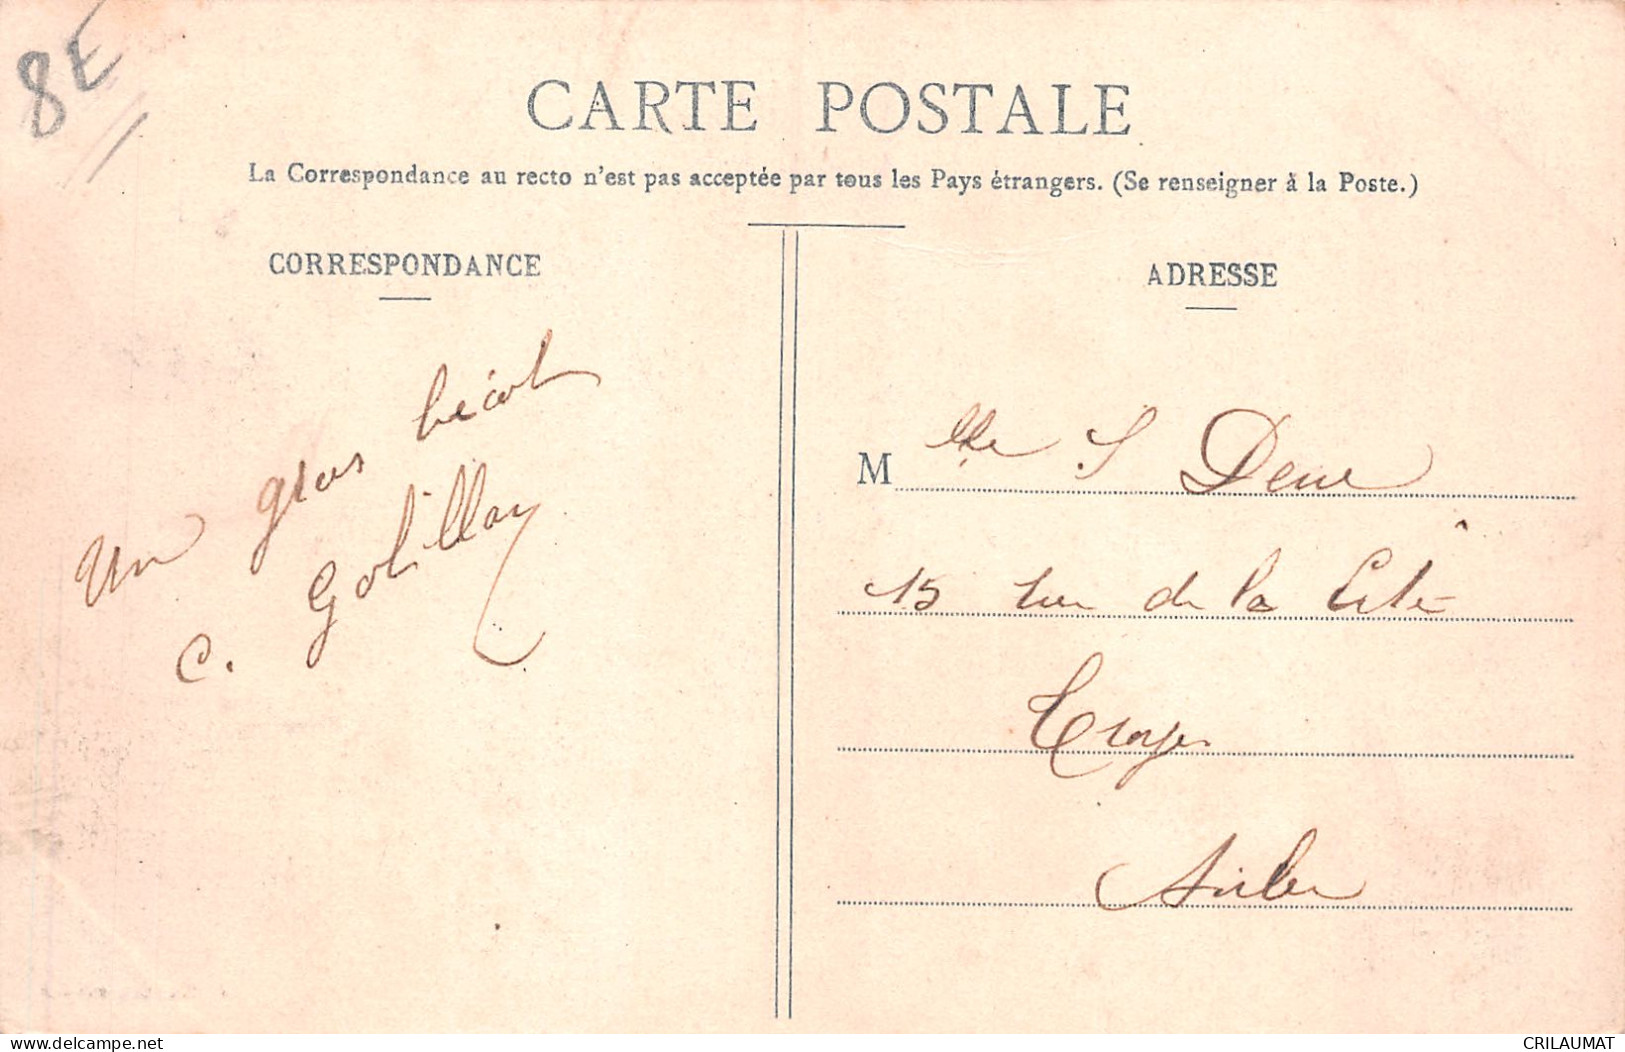 8E
CARTE POSTALE
La Correspondance au recto n'est pas acceptée par tous les Pays étrangers. (Se renseigner à la Poste.)
CORRESPONDANCE
Un gros bécot
C. Gobillay
ADRESSE
Mlle S
15 rue de la Cité
Troyes
Aube
www.delcampe.net
CRILAUMAT